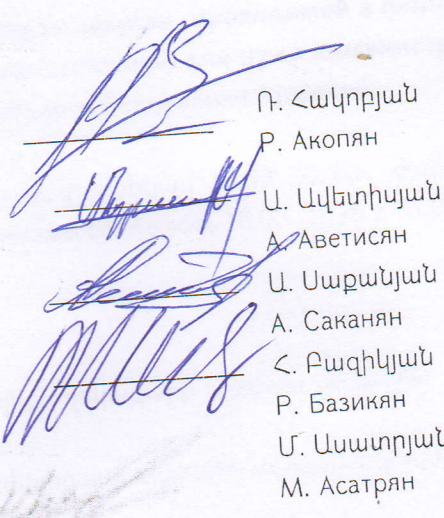 Ռ. Հակոբյան
Р. Акопян
Ա. Ավետիսյան
А. Аветисян
Ա. Սաքանյան
А. Саканян
Հ. Բազիկյան
Р. Базикян
Մ. Ասատրյան
М. Асатрян